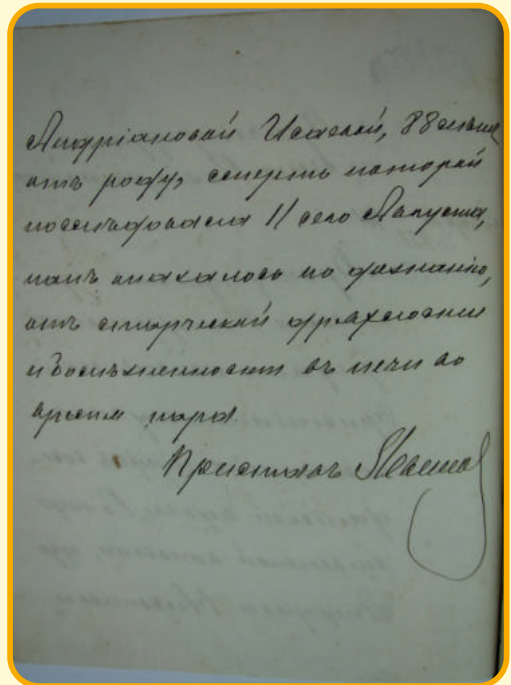 Андріановой Исаевой, 88 лѣтъ
отъ роду, смерть которой
послѣдовала 11 сего Августа,
какъ оказалось по дознанію,
отъ старческой дряхлости
и болѣзненности въ печи во
время пара
Приставъ